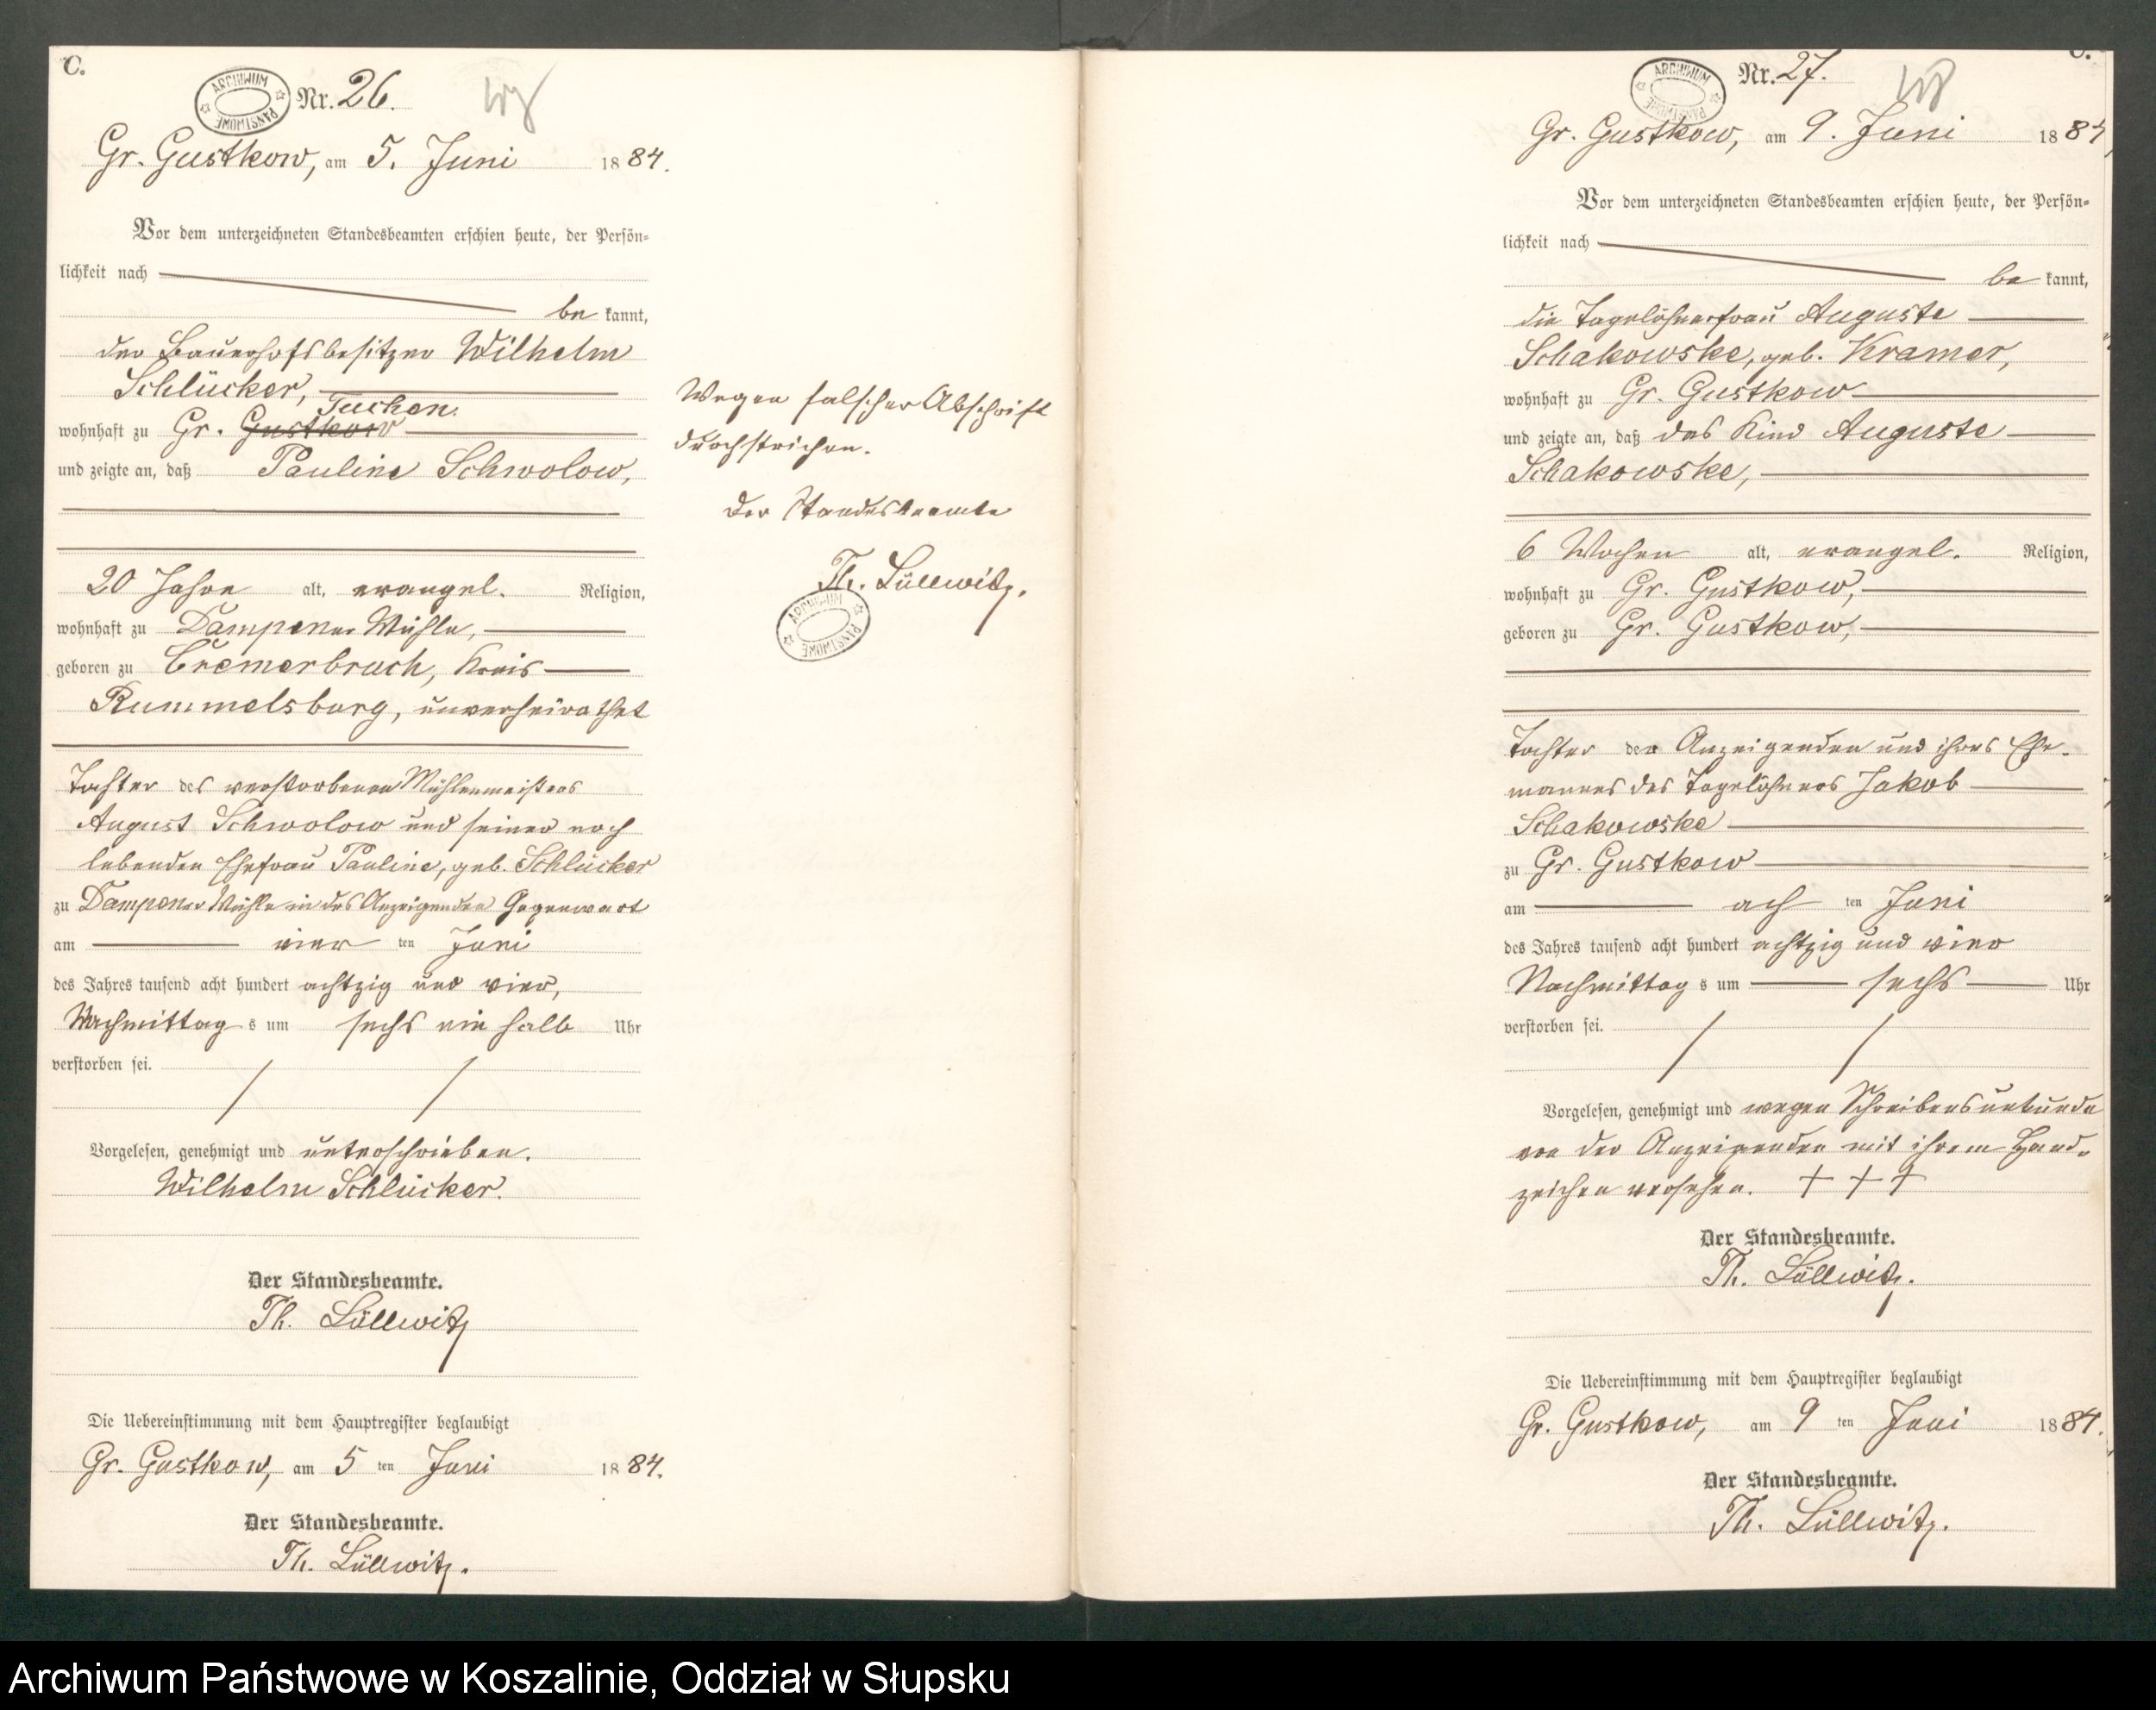 C.
ARCHIWUM PAŃSTWOWE
Nr. 26.
Gr. Gustkow, am 5. Juni 1884.
Vor dem unterzeichneten Standesbeamten erschien heute, der Persön-
lichkeit nach
be kannt,
der Bauerhofsbesitzer Wilhelm
Schlücker,
Tuchen.
wohnhaft zu Gr. Gustkow
und zeigte an, daß Pauline Schwolow,
20 Jahre alt, evangel. Religion,
wohnhaft zu Dampener Mühle,
geboren zu Cremerbruch, Kreis
Rummelsburg, unverheirathet
Tochter des verstorbenen Mühlenmeisters
August Schwolow und seiner noch
lebenden Ehefrau Pauline, geb. Schlücker
zu Dampener Mühle in des Anzeigenden Gegenwart
am vier ten Juni
des Jahres tausend acht hundert achtzig und vier,
Nachmittag s um sechs ein halb Uhr
verstorben sei.
Vorgelesen, genehmigt und unterschrieben.
Wilhelm Schlücker.
Der Standesbeamte.
Th. Lüllwitz
Die Uebereinstimmung mit dem Hauptregister beglaubigt
Gr. Gustkow, am 5 ten Juni 1884.
Der Standesbeamte.
Th. Lüllwitz.
Wegen falscher Abschrift
durchstrichen.
Der Standesbeamte
Th. Lüllwitz.
ARCHIWUM PAŃSTWOWE
C.
ARCHIWUM PAŃSTWOWE
Nr. 27.
Gr. Gustkow, am 9. Juni 1884
Vor dem unterzeichneten Standesbeamten erschien heute, der Persön-
lichkeit nach
be kannt,
die Tagelöhnerfrau Auguste
Schakowske, geb. Kramer,
wohnhaft zu Gr. Gustkow
und zeigte an, daß das Kind Auguste
Schakowske,
6 Wochen alt, evangel. Religion,
wohnhaft zu Gr. Gustkow,
geboren zu Gr. Gustkow,
Tochter der Anzeigenden und ihres Ehe-
mannes des Tagelöhners Jakob
Schakowske
zu Gr. Gustkow
am ach ten Juni
des Jahres tausend acht hundert achtzig und vier
Nachmittag s um sechs Uhr
verstorben sei.
Vorgelesen, genehmigt und wegen Schreibensunkunde
von der Anzeigenden mit ihrem Hand-
zeichen versehen. + + +
Der Standesbeamte.
Th. Lüllwitz.
Die Uebereinstimmung mit dem Hauptregister beglaubigt
Gr. Gustkow, am 9 ten Juni 1884.
Der Standesbeamte.
Th. Lüllwitz.
Archiwum Państwowe w Koszalinie, Oddział w Słupsku